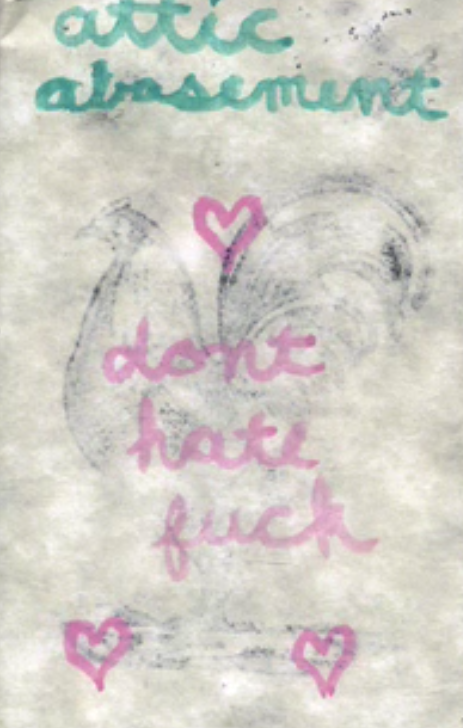 attic
abasement
dont
hate
fuck